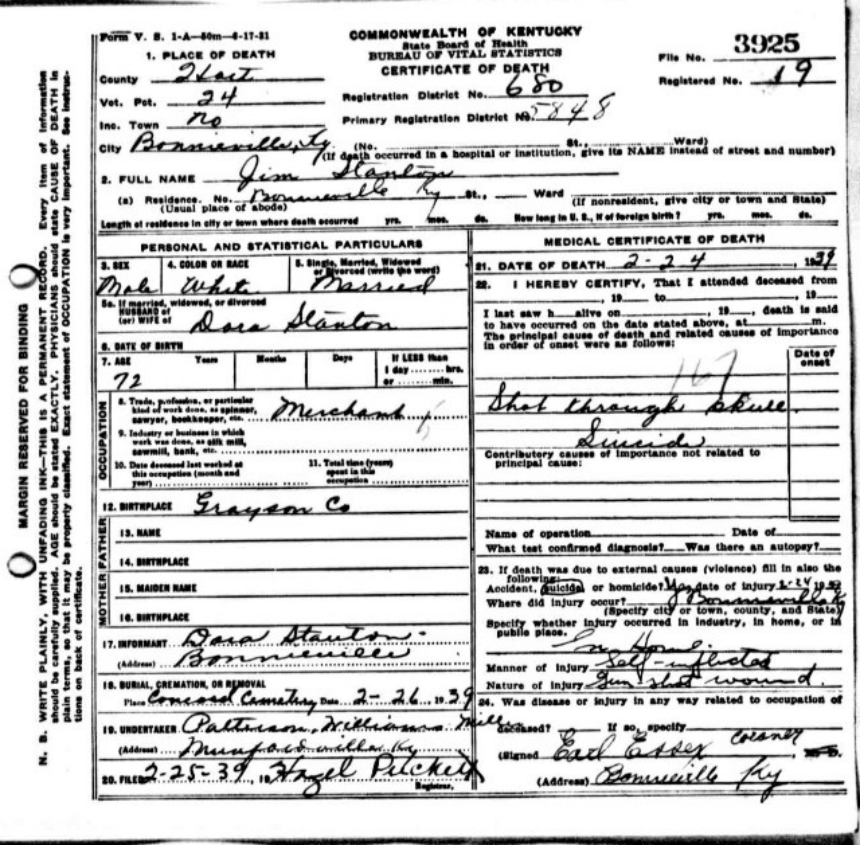 Form V. S. 1-A—50m—6-17-31
COMMONWEALTH OF KENTUCKY
State Board of Health
BUREAU OF VITAL STATISTICS
CERTIFICATE OF DEATH
File No. 3925
Registered No. 19
1. PLACE OF DEATH
County Hart
Vot. Pct. 24
Registration District No. 680
Inc. Town No
Primary Registration District No. 5848
City Bonnieville, Ky. (No. St., Ward)
(If death occurred in a hospital or institution, give its NAME instead of street and number)
2. FULL NAME Jim Stanton
(a) Residence. No. Bonnieville Ky St., Ward
(Usual place of abode) (If nonresident, give city or town and State)
Length of residence in city or town where death occurred yrs. mos. ds. How long in U. S., if of foreign birth? yrs. mos. ds.
PERSONAL AND STATISTICAL PARTICULARS
3. SEX 4. COLOR OR RACE 5. Single, Married, Widowed
or Divorced (write the word)
Male White Married
5a. If married, widowed, or divorced
HUSBAND of
(or) WIFE of Dora Stanton
6. DATE OF BIRTH
7. AGE Years Months Days If LESS than
1 day hrs.
72 or min.
OCCUPATION
8. Trade, profession, or particular
kind of work done, as spinner,
sawyer, bookkeeper, etc. Merchant
9. Industry or business in which
work was done, as silk mill,
sawmill, bank, etc.
10. Date deceased last worked at
this occupation (month and
year)
11. Total time (years)
spent in this
occupation
12. BIRTHPLACE Grayson Co
FATHER
13. NAME
14. BIRTHPLACE
MOTHER
15. MAIDEN NAME
16. BIRTHPLACE
17. INFORMANT Dora Stanton
(Address) Bonnieville
18. BURIAL, CREMATION, OR REMOVAL
Place Concord Cemetery Date 2-26, 1939
19. UNDERTAKER Patterson, Williams
(Address) Munfordville Ky
20. FILED 2-25-39, 19 Hazel Puckett
Registrar.
MEDICAL CERTIFICATE OF DEATH
21. DATE OF DEATH 2-24, 1939
22. I HEREBY CERTIFY, That I attended deceased from
, 19 to , 19
I last saw h alive on , 19 , death is said
to have occurred on the date stated above, at m.
The principal cause of death and related causes of importance
in order of onset were as follows:
Date of
onset
167
Shot through skull
Suicide
Contributory causes of importance not related to
principal cause:
Name of operation Date of
What test confirmed diagnosis? Was there an autopsy?
23. If death was due to external causes (violence) fill in also the
following:
Accident, suicide, or homicide? Yes date of injury 2-24 1939
Where did injury occur? Bonnieville Ky
(Specify city or town, county, and State)
Specify whether injury occurred in industry, in home, or in
public place.
In Home
Manner of injury Self-inflicted
Nature of injury Gun shot wound.
24. Was disease or injury in any way related to occupation of
deceased? If so, specify
(Signed Earl Essex coroner
(Address) Bonnieville Ky
MARGIN RESERVED FOR BINDING
N. B. WRITE PLAINLY, WITH UNFADING INK—THIS IS A PERMANENT RECORD. Every item of information
should be carefully supplied. AGE should be stated EXACTLY. PHYSICIANS should state CAUSE OF DEATH in
plain terms, so that it may be properly classified. Exact statement of OCCUPATION is very important. See instruc-
tions on back of certificate.